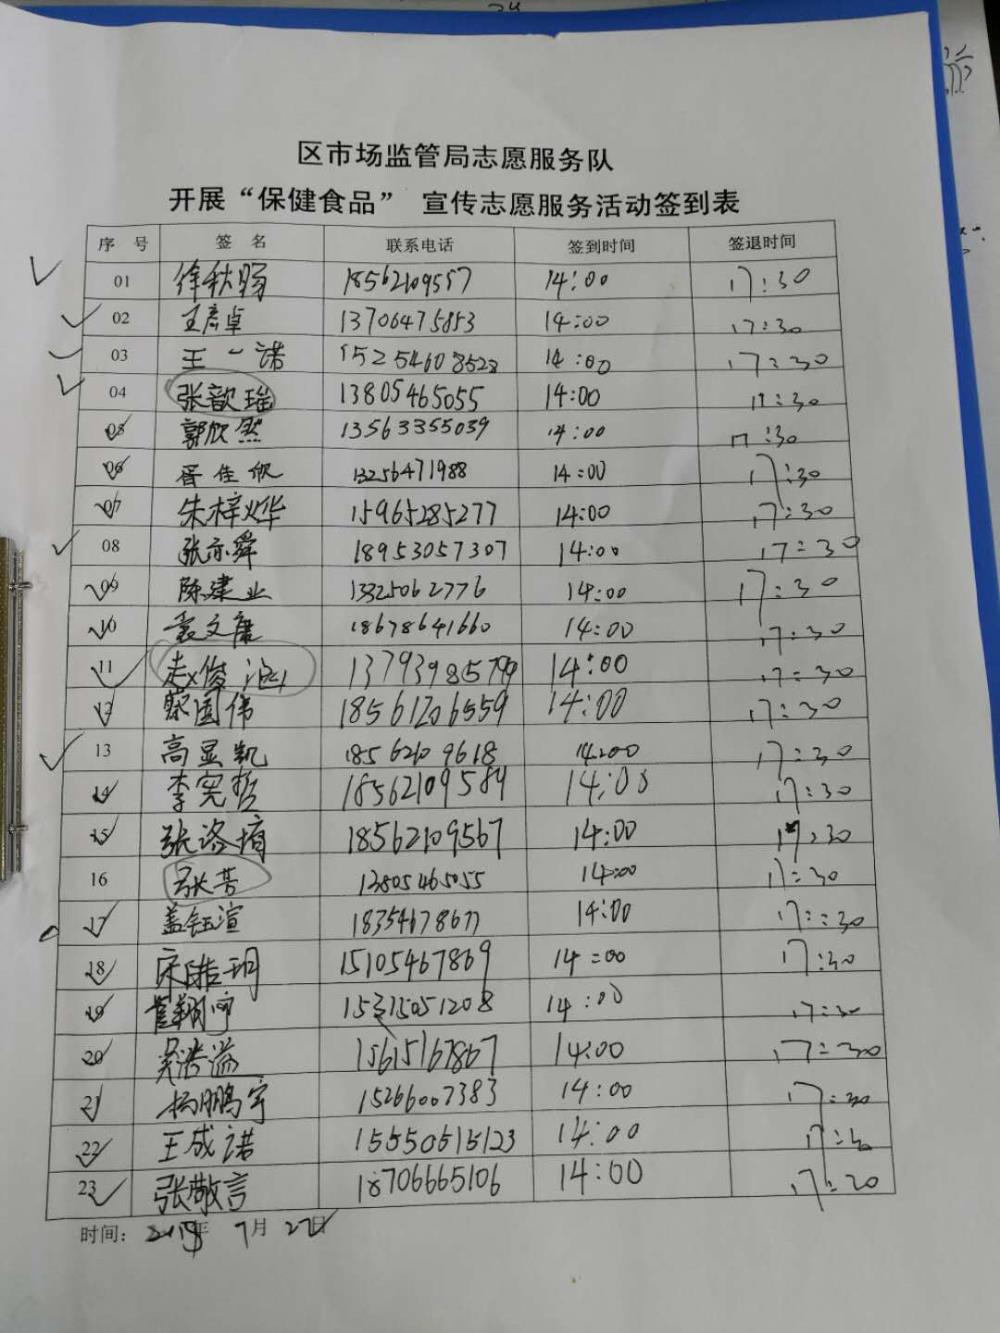 区市场监管局志愿服务队
开展“保健食品” 宣传志愿服务活动签到表
序 号 签 名 联系电话 签到时间 签退时间
01 徐秋旸 18562109557 14:00 17:30
02 王彦卓 13706475853 14:00 17:30
03 王一诺 15254608528 14:00 17:30
04 张歆瑶 13805465055 14:00 17:30
05 郭欣然 13563355039 14:00 17:30
06 胥佳 13256471988 14:00 17:30
07 朱梓烨 15965285277 14:00 17:30
08 张亦舜 18953057307 14:00 17:30
09 陈建业 13325062776 14:00 17:30
10 袁文康 18678641660 14:00 17:30
11 赵俊涵 13793985799 14:00 17:30
12 蔡国伟 18561206559 14:00 17:30
13 高显凯 18562109618 14:00 17:30
14 李宪哲 18562109584 14:00 17:30
15 张洛 18562109567 14:00 17:30
16 张芳 13805465055 14:00 17:30
17 盖钰渲 18354678677 14:00 17:30
18 宋皓玥 15105467869 14:00 17:30
19 翔宇 15315051208 14:00 17:30
20 吴浩 15615167867 14:00 17:30
21 杨鹏宇 15266007383 14:00 17:30
22 王成诺 15550515123 14:00 17:30
23 张敬言 18706665106 14:00 17:20
时间: 年 7月27日